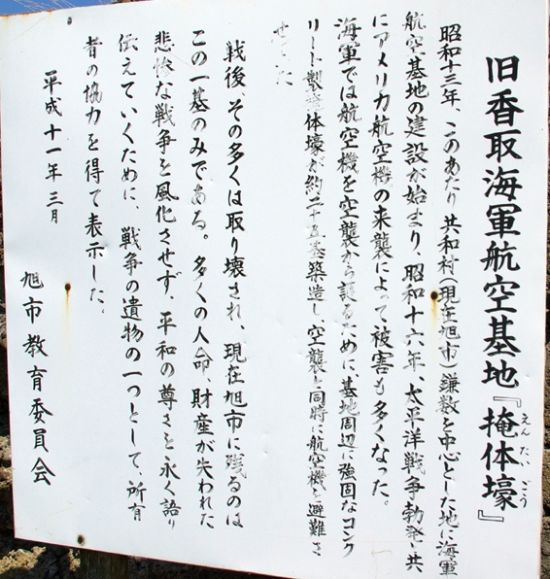 旧香取海軍航空基地『掩体壕』
えんたいごう
昭和十三年、このあたり共和村(現在旭市)鎌数を中心とした地に海軍
航空基地の建設が始まり、昭和十六年、太平洋戦争勃発と共
にアメリカ航空機の来襲によって被害も多くなった。
海軍では航空機を空襲から護るために、基地周辺に強固なコンク
リート製掩体壕が約二十五基築造し空襲と同時に航空機を避難さ
せていた
戦後その多くは取り壊され、現在旭市に残るのは
この一基のみである。多くの人命、財産が失われた
悲惨な戦争を風化させず、平和の尊さを永く語り
伝えていくために、戦争の遺物の一つとして、所有
者の協力を得て表示した。
平成十一年三月
旭市教育委員会